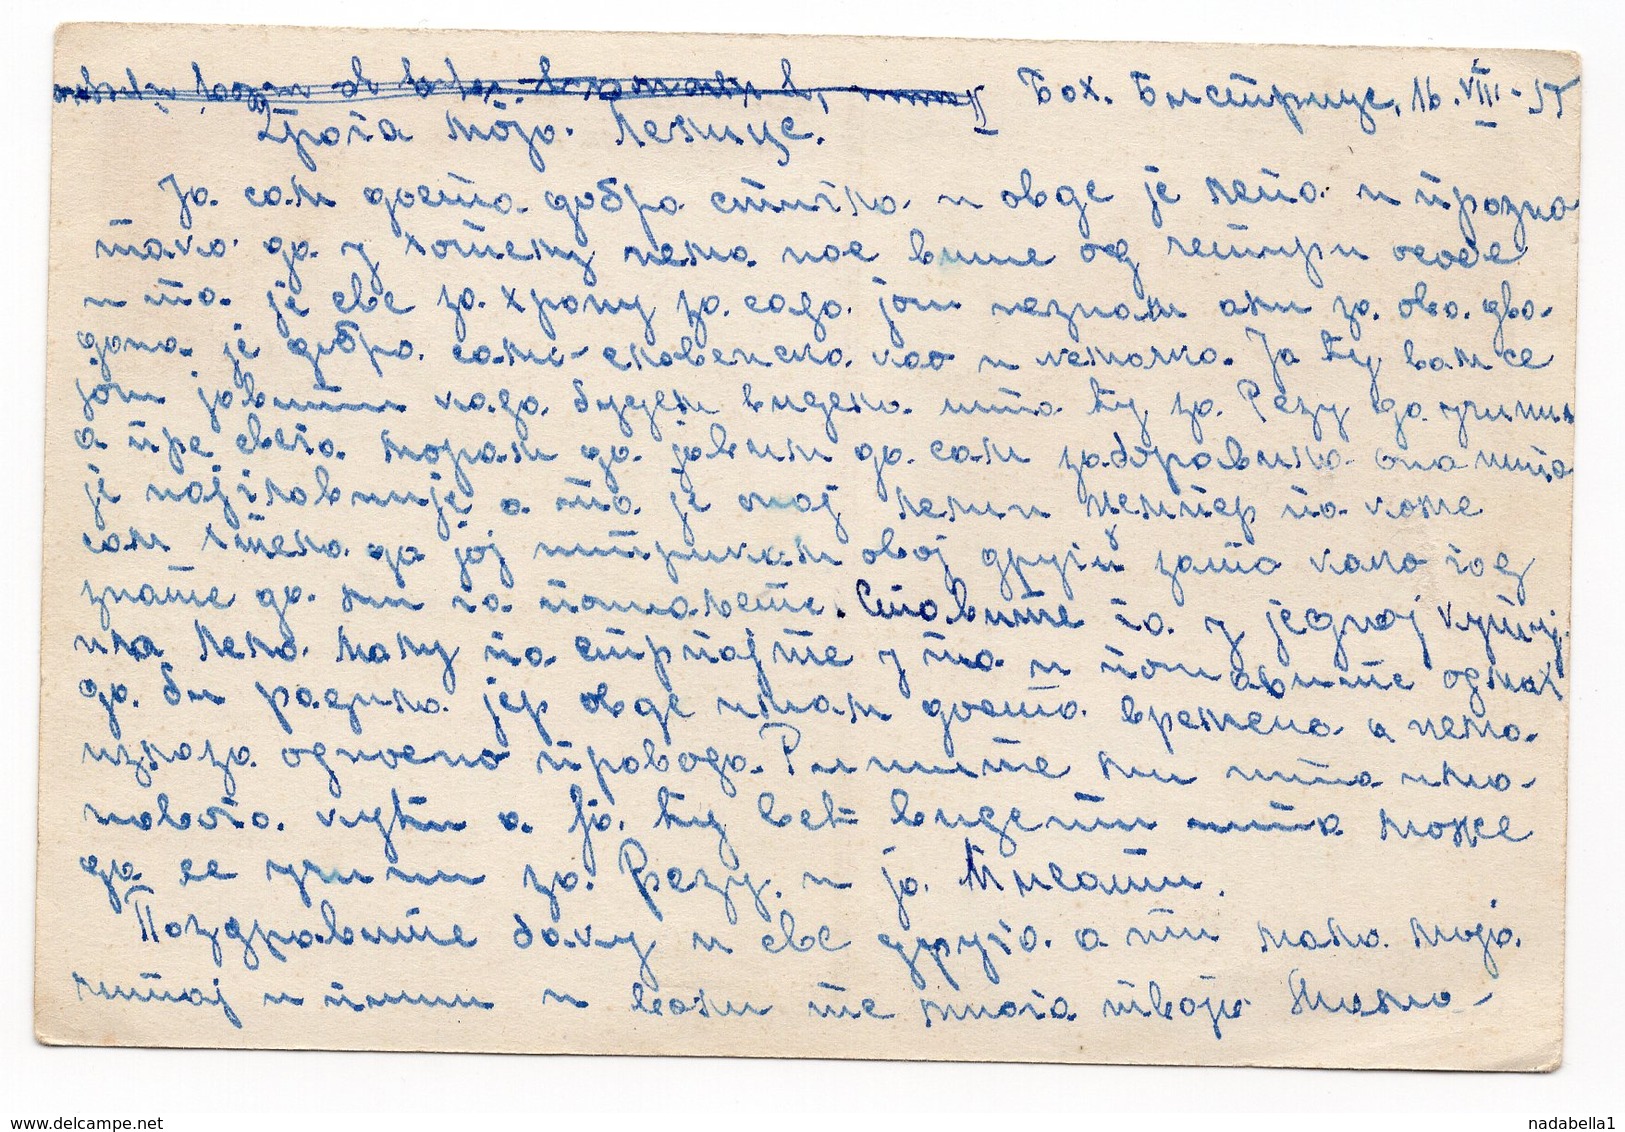 Бох. Бистрице, 16. VIII - 55
Драга моја Ленице.
Ја сам доста добро стигла и овде је лепо и празно
тако да у хотелу нема нас више од четири особе
и то је све за храну за сада још незнам али за ова два
дана је добра само словенска као и немачка. Ја ћу вам се
још јавити када будем видела шта ћу за Резу да учиним
а пре свега морам да јавим да сам заборавила оно што
је најглавније а то је онај џемпер па коме
сам хтела да јој штрикам овај други зато како год
знате да ми га пошаљете. Ставите га у једној кутији
или лепо у га стрпајте у то и пошаљите одмах
да би радила јер овде имам доста времена а нема
излаза односно провода. Пишите ми шта има
новога кући а ја ћу већ видети шта може
да се учини за Резу и ја Мисати.
Поздравите баку и све друге а ти мала моја
читај и пиши и воли те много твоја Мама
nadabella1